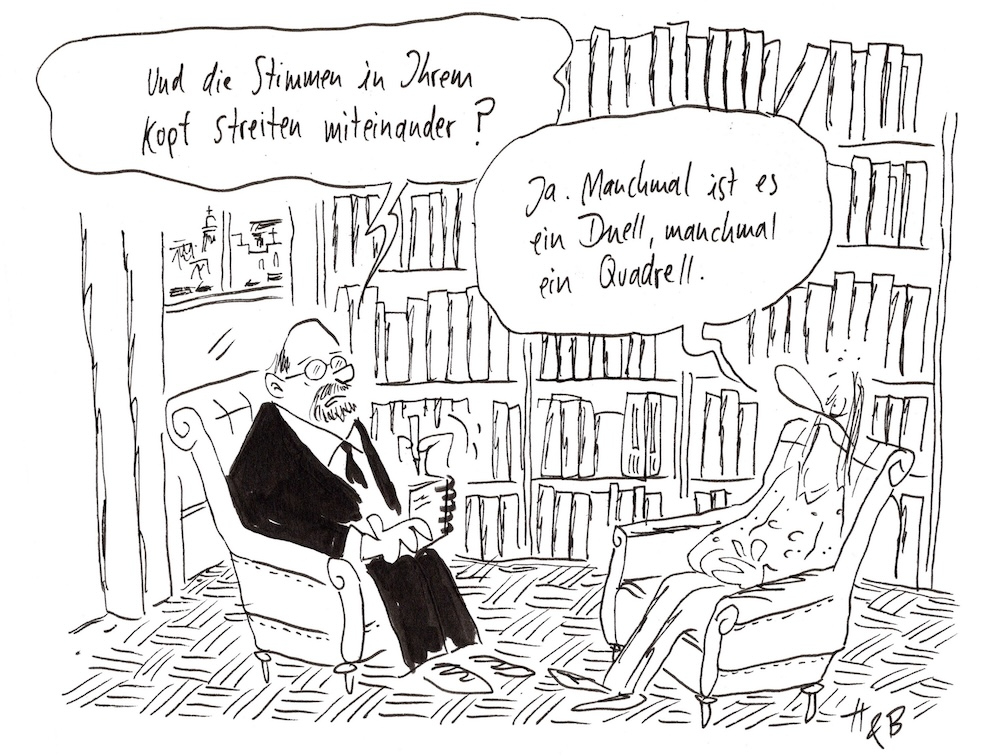 Und die Stimmen in Ihrem
Kopf streiten miteinander?
Ja. Manchmal ist es
ein Duell, manchmal
ein Quadrell.
H&B